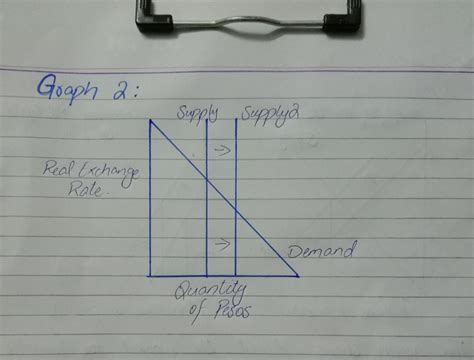 Graph 2:
Supply Supply2
Real Exchange
Rate.
Demand
Quantity
of Pesos